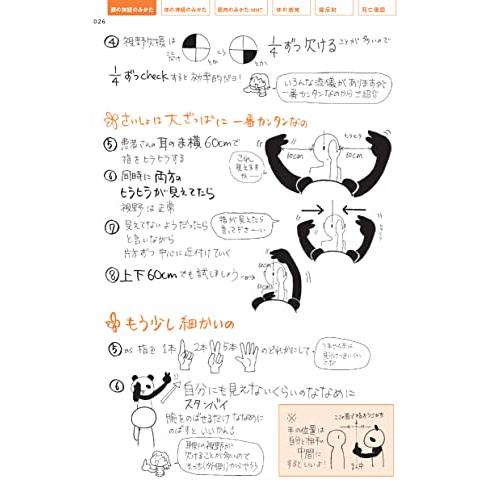 脳の神経のみかた
体の神経のみかた
筋肉のみかたMMT
体の感覚
腱反射
死亡確認
026
④ 視野欠損は
とか
とか
1/4ずつ欠ける ことが多いので
1/4ずつcheckすると効率的だョ!
いろんな流儀がありますが
一番カンタンなのからご紹介
さいしょは大ざっぱに 一番カンタンなの
⑤ 患者さんの耳のま横60cmで
指をヒラヒラする
これ、
見えます
か
ヒラヒラ
60cm
60cm
⑥ 同時に両方の
ヒラヒラが見えてたら
視野は正常
⑦ 見えてないようだったら
と言いながら
片方ずつ中心に近付けていく
指が見えたら
言って下さーい
⑧ 上下60cmでも試しましょう
60cm
60cm
もう少し細かいの
⑤ as 指を1本 2本 5本 のどれかにして
⑥ 自分にも見えないくらいのななめに
スタンバイ
腕をのばせるだけななめに
のばすといいかんじ
耳側の視野が
欠けることが多いので
そっち(外側)からやろう
※
手の位置は
自分と相手の
中間に
するといいよ!
まん中